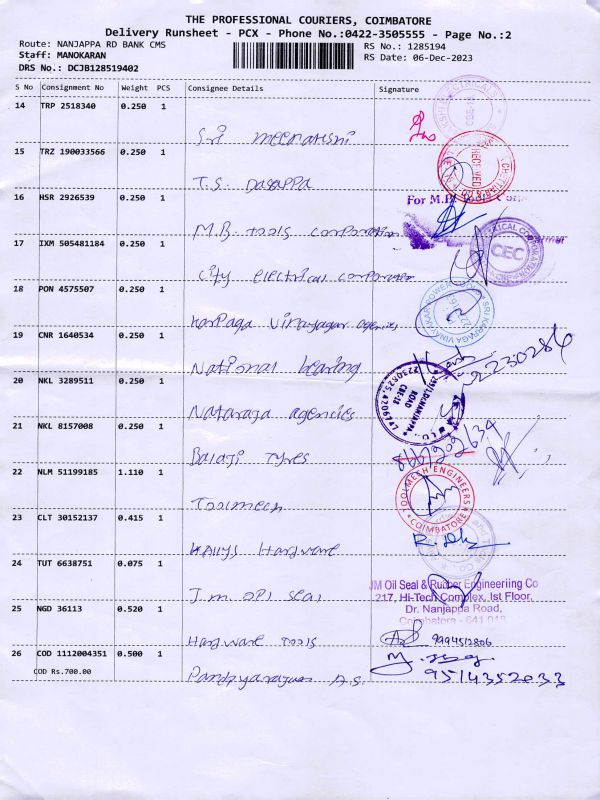 THE PROFESSIONAL COURIERS, COIMBATORE
Delivery Runsheet - PCX - Phone No.:0422-3505555 - Page No.:2
Route: NANJAPPA RD BANK CMS
RS No.: 1285194
Staff: MANOKARAN
RS Date: 06-Dec-2023
DRS No.: DCJB128519402
S No Consignment No Weight PCS Consignee Details Signature
14 TRP 2518340 0.250 1
Sri meenakshi
15 TRZ 190033566 0.250 1
RECEIVED
T.S. Dasappa
16 HSR 2926539 0.250 1
For M.B. Tools Cor
M.B. Tools corporation
17 IXM 505481184 0.250 1
CEC
City electrical corporation
18 PON 4575507 0.250 1
SRI KARPAGA VINAYAKAR POWER
Karpaga vinayagar agencies
19 CNR 1640534 0.250 1
National bearing
2230286
20 NKL 3289511 0.250 1
NANJAPPA ROAD
CBE-18
Nataraja agencies
21 NKL 8157008 0.250 1
Balaji Tyres
22 NLM 51199185 1.110 1
TOOLMECH ENGINEERS
COIMBATORE
Toolmech
23 CLT 30152137 0.415 1
Kallys Hardware
24 TUT 6638751 0.075 1
JM Oil Seal & Rubber Engineeriing Co
217, Hi-Tech Complex, Ist Floor,
J.m. oil seal
Dr. Nanjappa Road,
25 NGD 36113 0.520 1
Coimbatore - 641 018
Hardware Tools
9994512806
26 COD 1112004351 0.500 1
COD Rs.700.00
9514352033